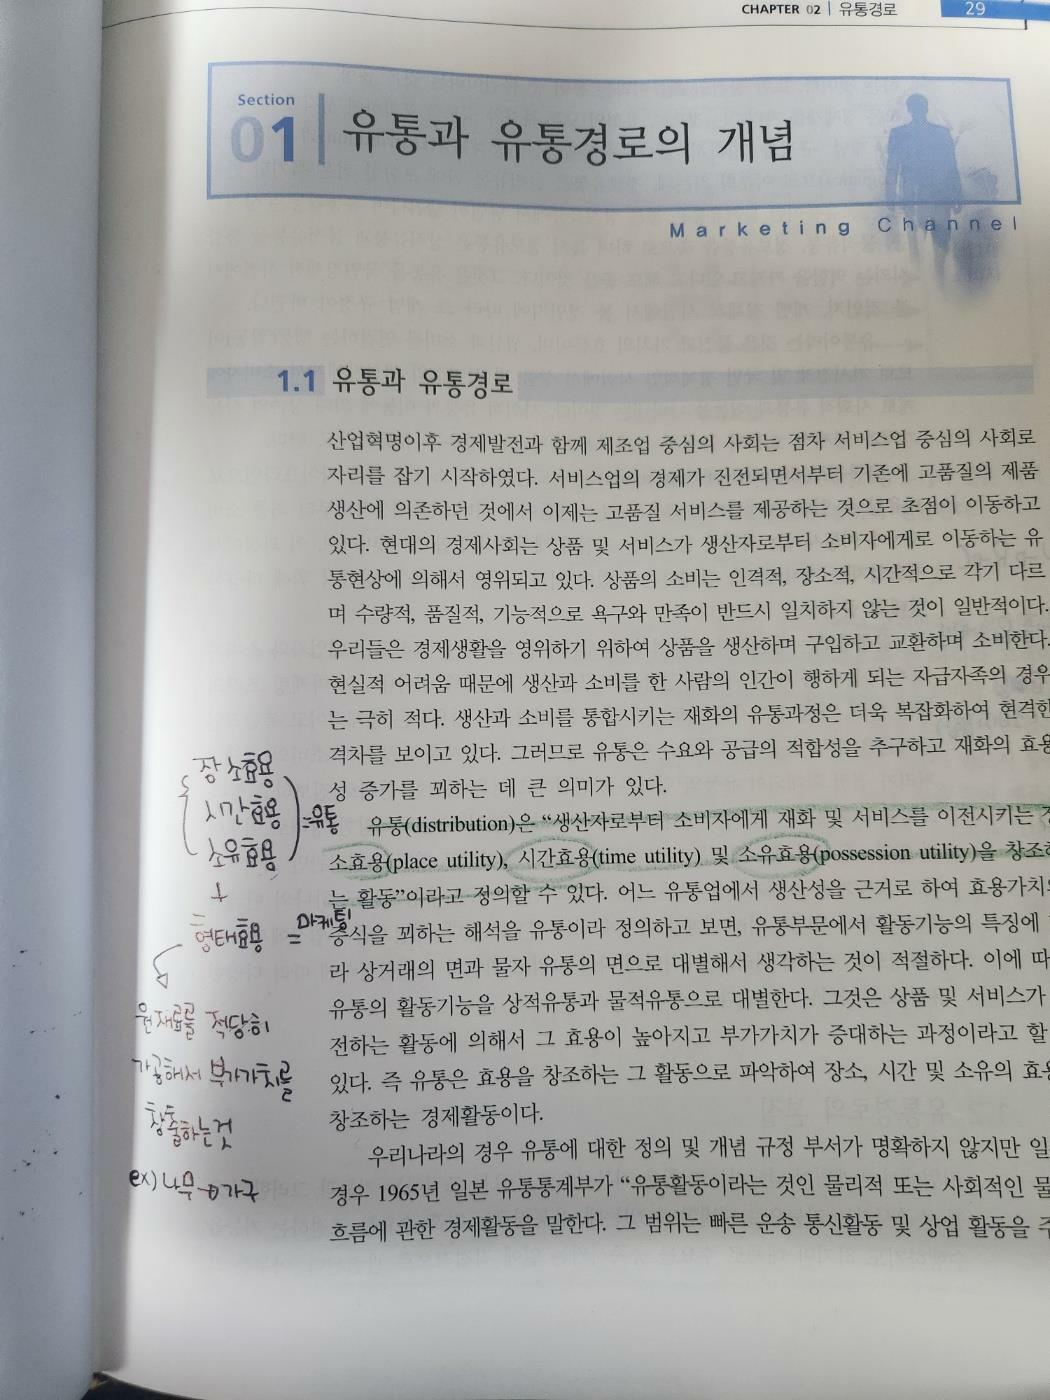 CHAPTER 02 | 유통경로 29
Section
01 유통과 유통경로의 개념
Marketing Channel
1.1 유통과 유통경로
산업혁명이후 경제발전과 함께 제조업 중심의 사회는 점차 서비스업 중심의 사회로
자리를 잡기 시작하였다. 서비스업의 경제가 진전되면서부터 기존에 고품질의 제품
생산에 의존하던 것에서 이제는 고품질 서비스를 제공하는 것으로 초점이 이동하고
있다. 현대의 경제사회는 상품 및 서비스가 생산자로부터 소비자에게로 이동하는 유
통현상에 의해서 영위되고 있다. 상품의 소비는 인격적, 장소적, 시간적으로 각기 다르
며 수량적, 품질적, 기능적으로 욕구와 만족이 반드시 일치하지 않는 것이 일반적이다.
우리들은 경제생활을 영위하기 위하여 상품을 생산하며 구입하고 교환하며 소비한다.
현실적 어려움 때문에 생산과 소비를 한 사람의 인간이 행하게 되는 자급자족의 경우
는 극히 적다. 생산과 소비를 통합시키는 재화의 유통과정은 더욱 복잡화하여 현격한
격차를 보이고 있다. 그러므로 유통은 수요와 공급의 적합성을 추구하고 재화의 효용
성 증가를 꾀하는 데 큰 의미가 있다.
유통(distribution)은 “생산자로부터 소비자에게 재화 및 서비스를 이전시키는
소효용(place utility), 시간효용(time utility) 및 소유효용(possession utility)을 창조하
는 활동”이라고 정의할 수 있다. 어느 유통업에서 생산성을 근거로 하여 효용가치의
증식을 꾀하는 해석을 유통이라 정의하고 보면, 유통부문에서 활동기능의 특징에
라 상거래의 면과 물자 유통의 면으로 대별해서 생각하는 것이 적절하다. 이에 따
유통의 활동기능을 상적유통과 물적유통으로 대별한다. 그것은 상품 및 서비스가
전하는 활동에 의해서 그 효용이 높아지고 부가가치가 증대하는 과정이라고 할
있다. 즉 유통은 효용을 창조하는 그 활동으로 파악하여 장소, 시간 및 소유의 효용
창조하는 경제활동이다.
우리나라의 경우 유통에 대한 정의 및 개념 규정 부서가 명확하지 않지만 일
경우 1965년 일본 유통통계부가 “유통활동이라는 것인 물리적 또는 사회적인 물
흐름에 관한 경제활동을 말한다. 그 범위는 빠른 운송 통신활동 및 상업 활동을 주
장소효용
시간효용 =유통
소유효용
+
형태효용 = 마케팅
원재료를 적당히
가공해서 부가가치를
창출하는것
ex) 나무→가구